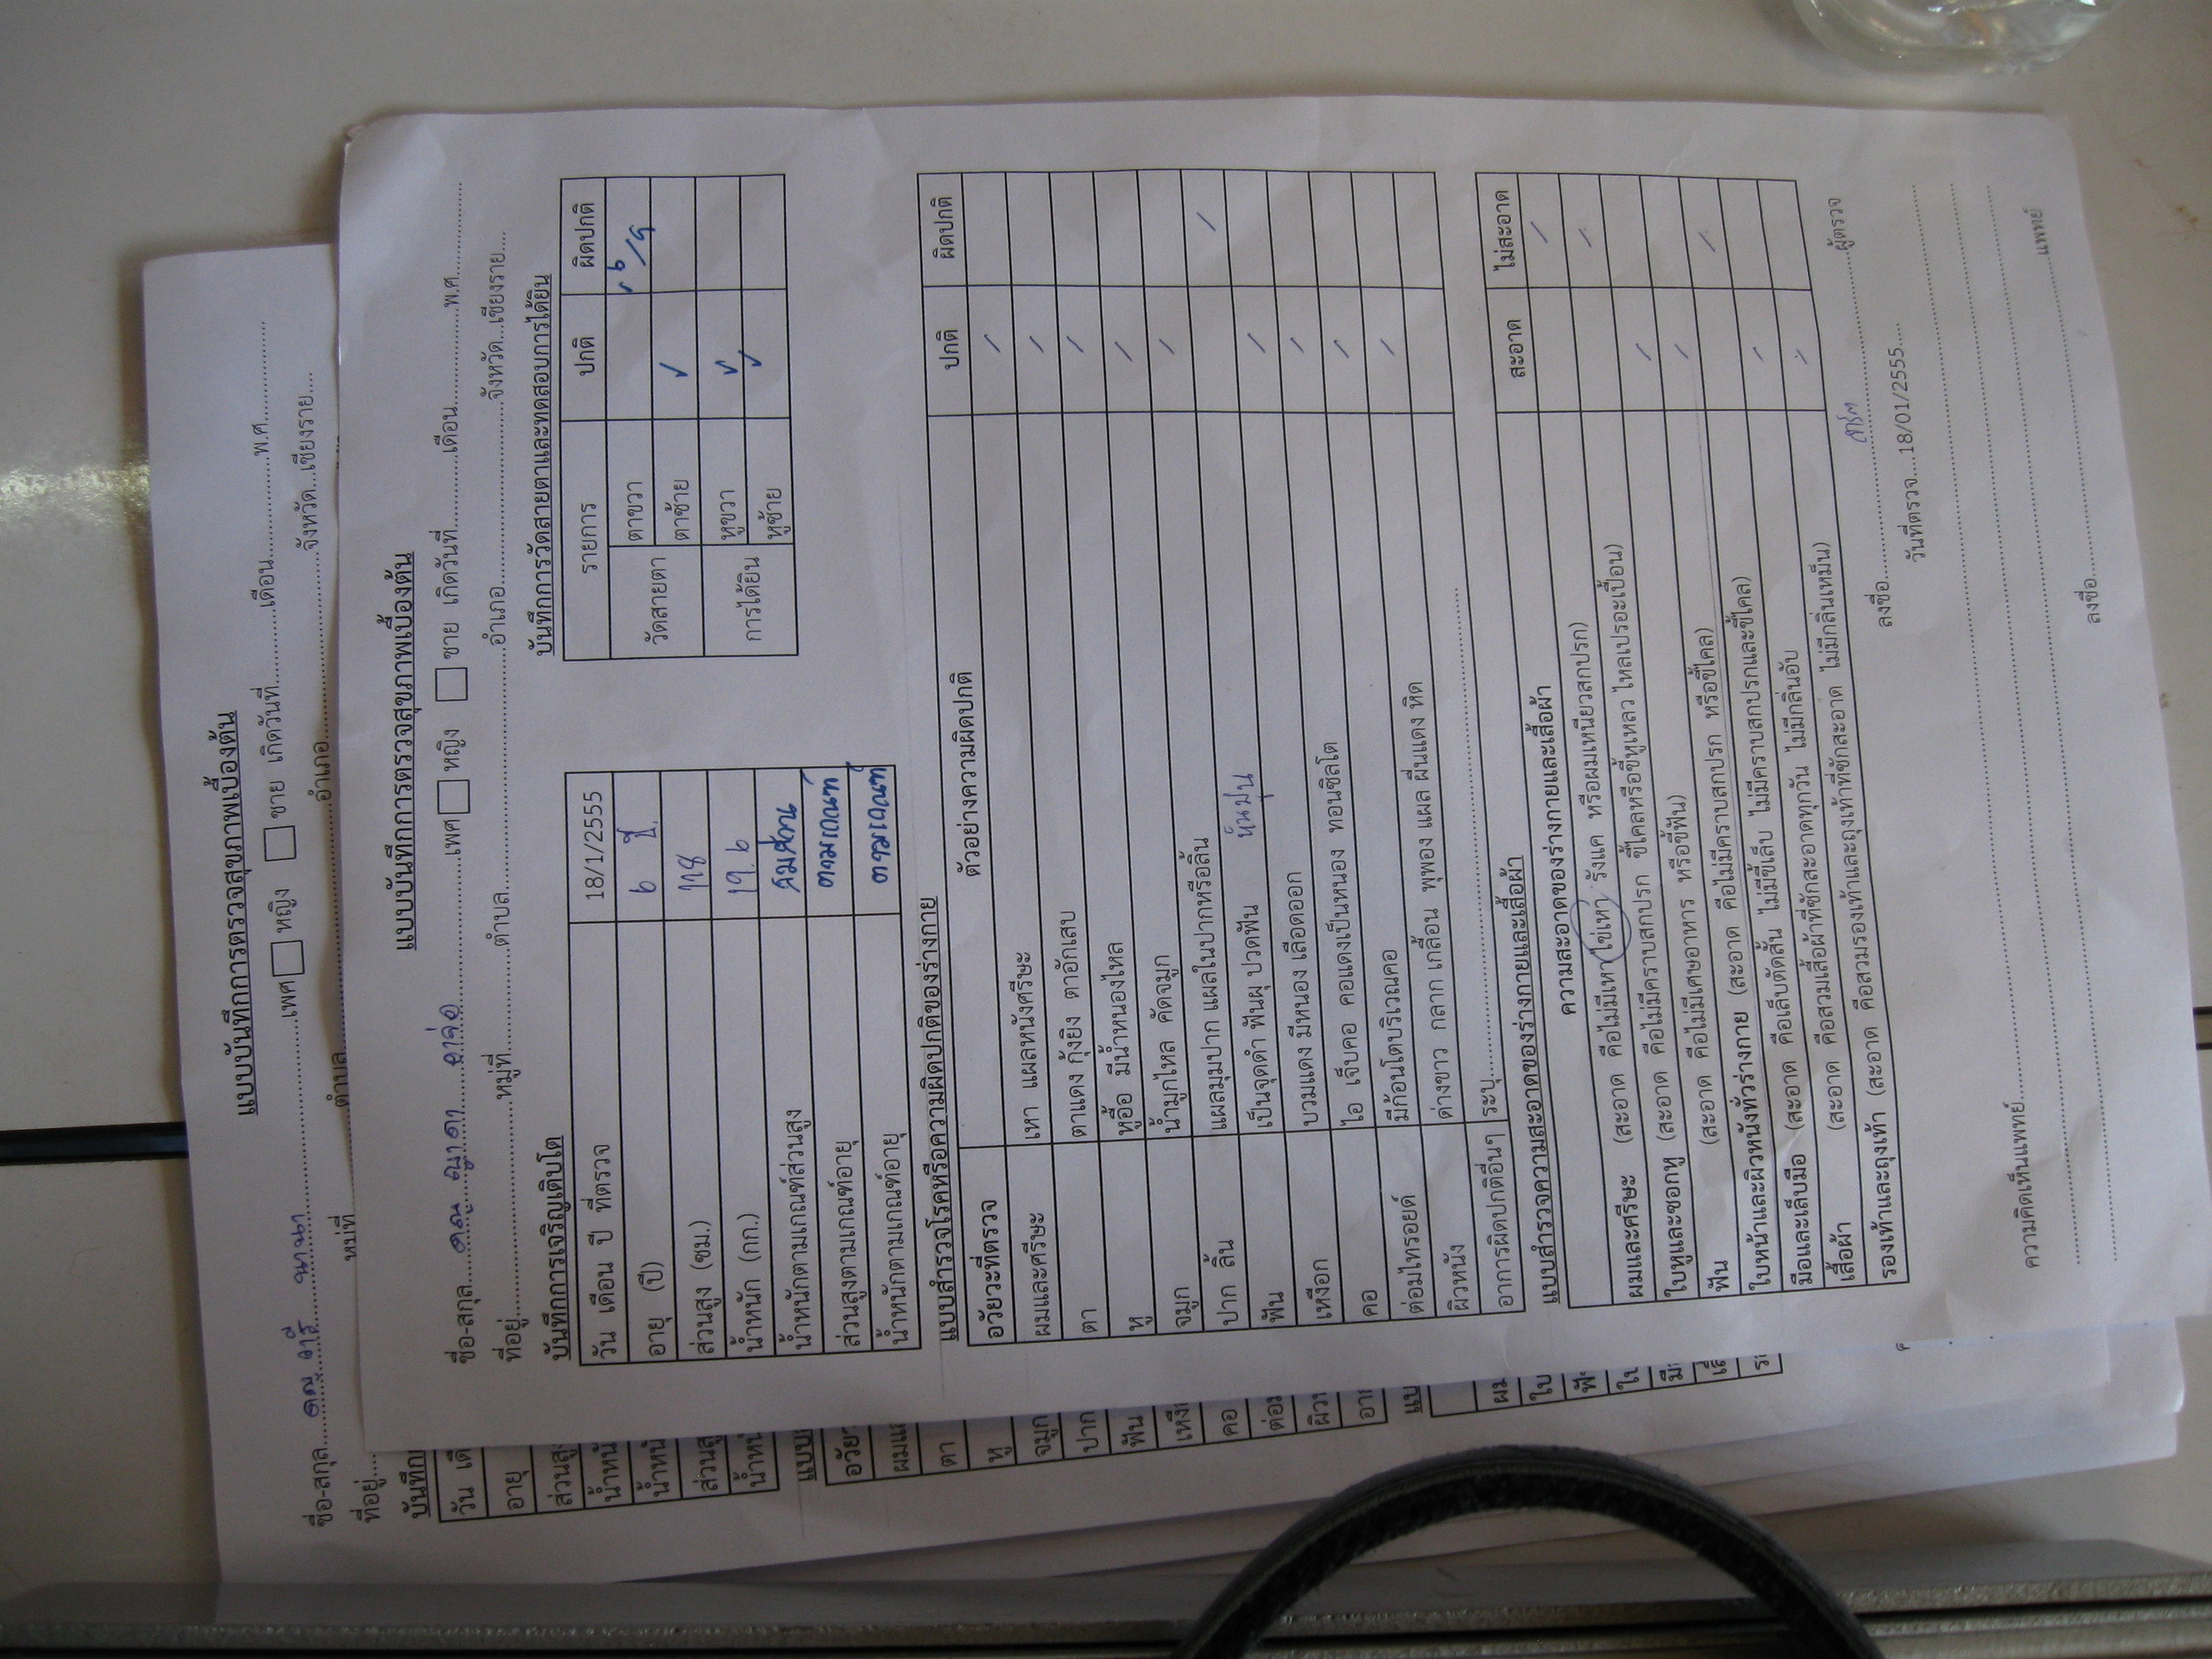 แบบบันทึกการตรวจสุขภาพเบื้องต้น
ชื่อ-สกุล.....ดญ. นานา.....เพศ หญิง ชาย เกิดวันที่..........เดือน..........พ.ศ..........
ที่อยู่..........หมู่ที่..........ตำบล..........อำเภอ..........จังหวัด...เชียงราย....
แบบบันทึกการตรวจสุขภาพเบื้องต้น
ชื่อ-สกุล.....ดญ. ณูาดา อาจ่อ.....เพศ หญิง ชาย เกิดวันที่..........เดือน..........พ.ศ..........
ที่อยู่..........หมู่ที่..........ตำบล..........อำเภอ..........จังหวัด...เชียงราย....
บันทึกการเจริญเติบโต
วัน เดือน ปี ที่ตรวจ 18/1/2555
อายุ (ปี) ๖ ปี.
ส่วนสูง (ซม.) 118
น้ำหนัก (กก.) 19.๖
น้ำหนักตามเกณฑ์ส่วนสูง สมส่วน
ส่วนสูงตามเกณฑ์อายุ ตามเกณฑ์
น้ำหนักตามเกณฑ์อายุ ตามเกณฑ์
บันทึกการวัดสายตาและทดสอบการได้ยิน
รายการ ปกติ ผิดปกติ
วัดสายตา ตาขวา ๖/๙
ตาซ้าย ✓
การได้ยิน หูขวา ✓
หูซ้าย ✓
แบบสำรวจโรคหรือความผิดปกติของร่างกาย
อวัยวะที่ตรวจ ตัวอย่างความผิดปกติ ปกติ ผิดปกติ
ผมและศรีษะ เหา แผลหนังศรีษะ /
ตา ตาแดง กุ้งยิง ตาอักเสบ /
หู หูอื้อ มีน้ำหนองไหล /
จมูก น้ำมูกไหล คัดจมูก /
ปาก ลิ้น แผลมุมปาก แผลในปากหรือลิ้น /
ฟัน เป็นจุดดำ ฟันผุ ปวดฟัน หินปูน /
เหงือก บวมแดง มีหนอง เลือดออก /
คอ ไอ เจ็บคอ คอแดงเป็นหนอง ทอนซิลโต /
ต่อมไทรอยด์ มีก้อนโตบริเวณคอ /
ผิวหนัง ด่างขาว กลาก เกลื้อน พุพอง แผล ผื่นแดง หิด /
อาการผิดปกติอื่นๆ ระบุ..........
แบบสำรวจความสะอาดของร่างกายและเสื้อผ้า
ความสะอาดของร่างกายและเสื้อผ้า สะอาด ไม่สะอาด
ผมและศรีษะ (สะอาด คือไม่มีเหา ไข่เหา รังแค หรือผมเหนียวสกปรก) /
ใบหูและซอกหู (สะอาด คือไม่มีคราบสกปรก ขี้ไคลหรือขี้หูเหลว ไหลเปรอะเปื้อน) /
ฟัน (สะอาด คือไม่มีเศษอาหาร หรือขี้ฟัน) /
ใบหน้าและผิวหนังทั่วร่างกาย (สะอาด คือไม่มีคราบสกปรก หรือขี้ไคล) /
มือและเล็บมือ (สะอาด คือเล็บตัดสั้น ไม่มีขี้เล็บ ไม่มีคราบสกปรกและขี้ไคล) /
เสื้อผ้า (สะอาด คือสวมเสื้อผ้าที่ซักสะอาดทุกวัน ไม่มีกลิ่นอับ /
รองเท้าและถุงเท้า (สะอาด คือสวมรองเท้าและถุงเท้าที่ซักสะอาด ไม่มีกลิ่นเหม็น) /
ลงชื่อ....................ผู้ตรวจ
วันที่ตรวจ....18/01/2555....
ความคิดเห็นแพทย์..........
ลงชื่อ....................แพทย์